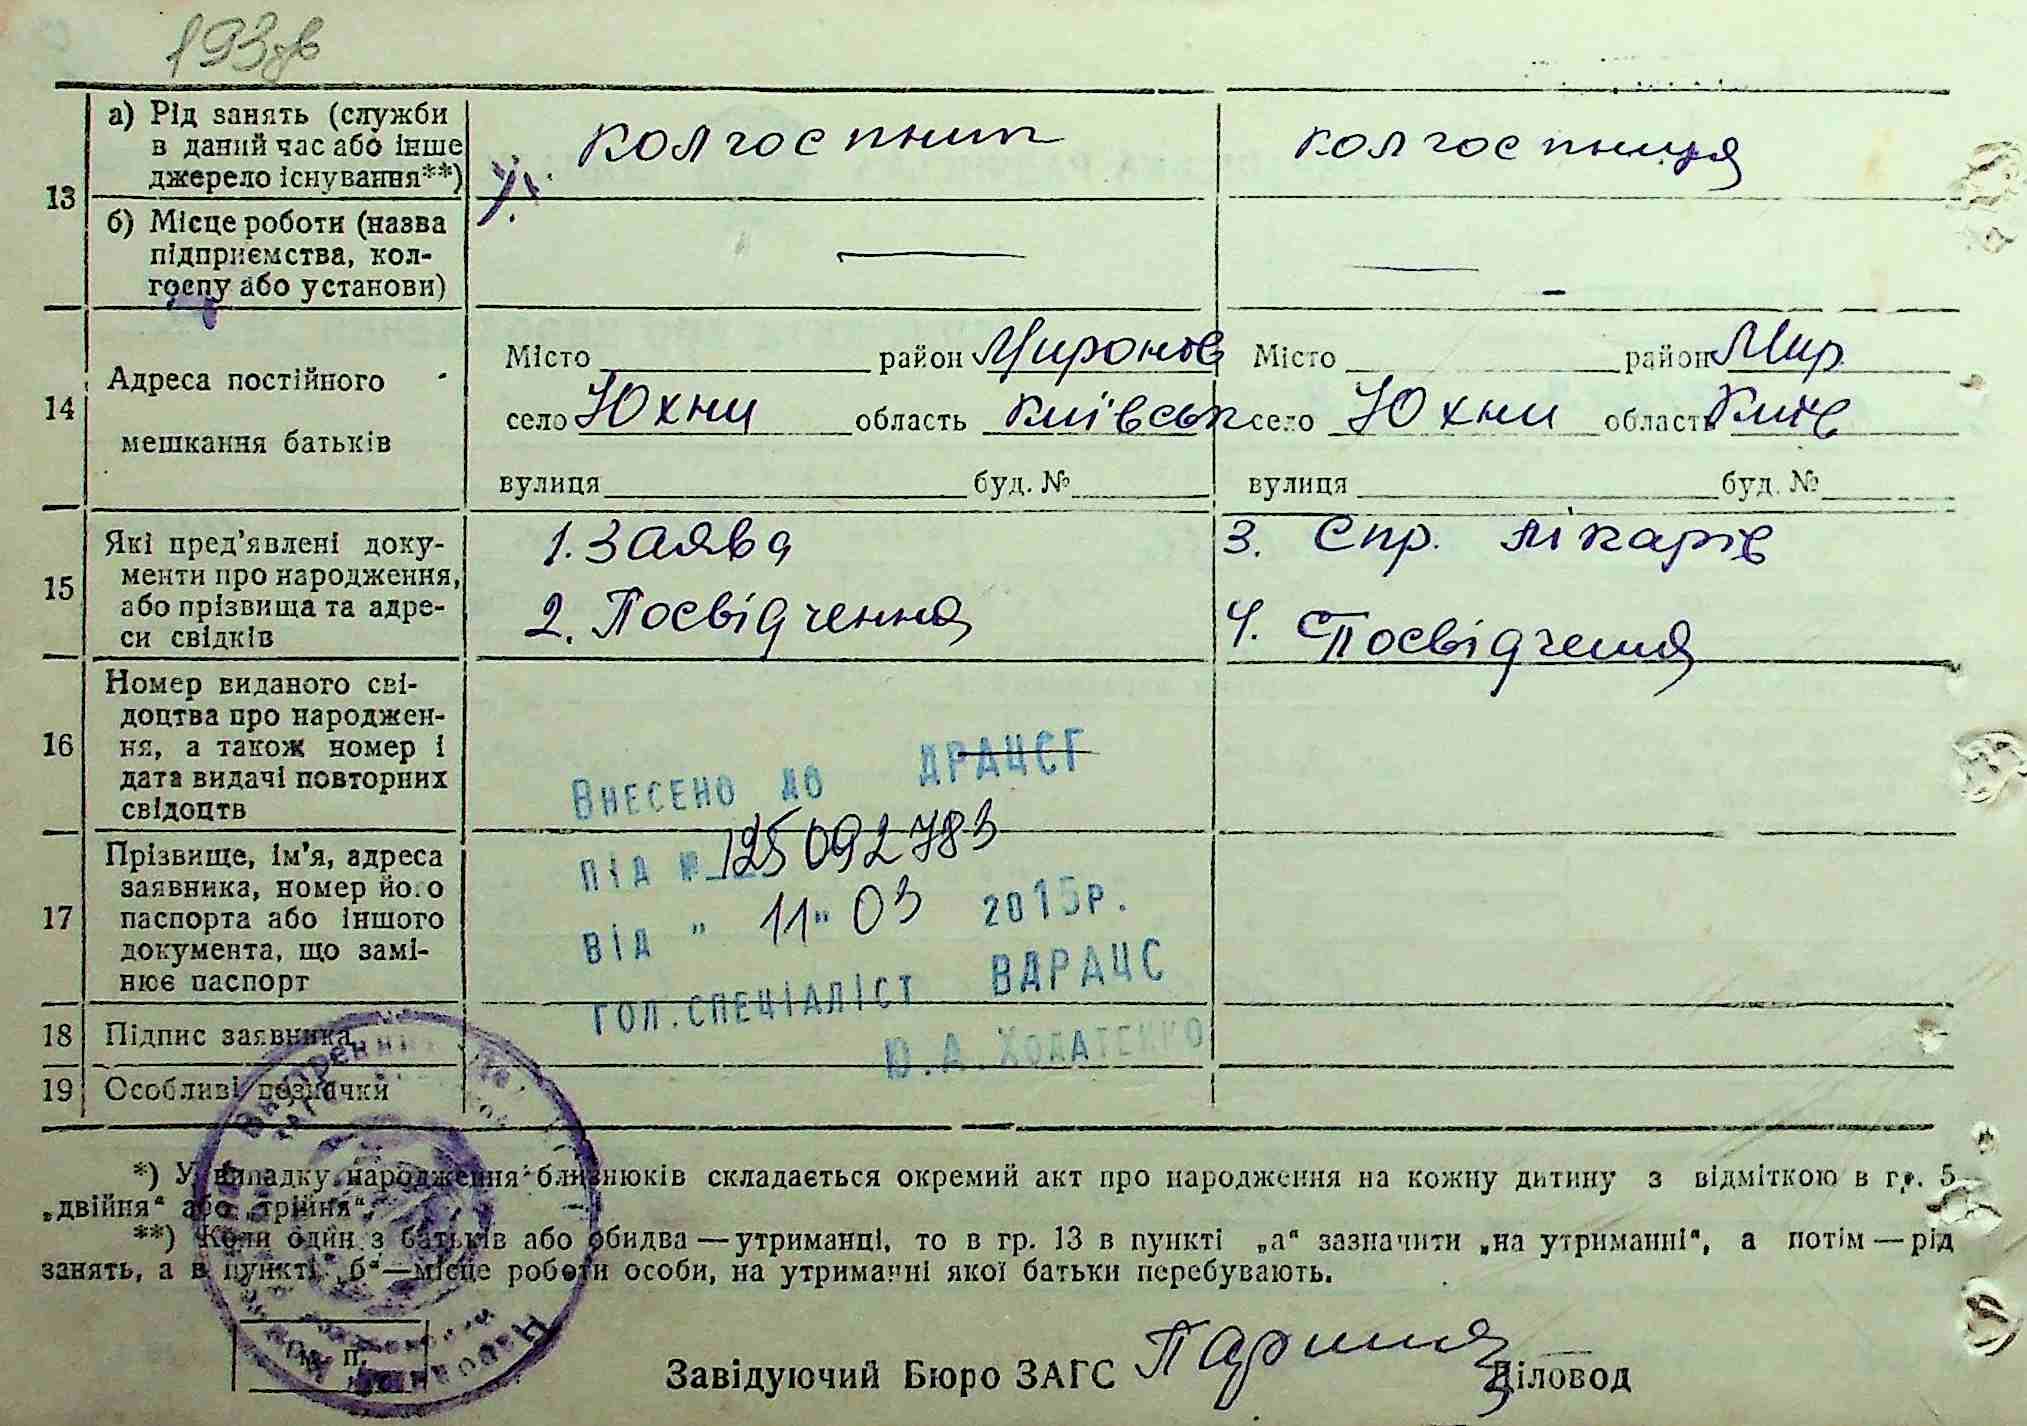 193зв
13
а) Рід занять (служби
в даний час або інше
джерело існування**)
колгоспник
колгоспниця
б) Місце роботи (назва
підприємства, кол-
госпу або установи)
14
Адреса постійного
мешкання батьків
Місто район Миронів
село Юхни область Київськ
вулиця буд. №
Місто район Мир
село Юхни область Київ
вулиця буд. №
15
Які пред'явлені доку-
менти про народження,
або прізвища та адре-
си свідків
1. Заява
2. Посвідчення
3. Спр. лікарів
4. Посвідчення
16
Номер виданого сві-
доцтва про народжен-
ня, а також номер і
дата видачі повторних
свідоцтв
Внесено до ДРАЦСГ
під № 125092783
від " 11 " 03 2015р.
гол.спеціаліст ВДРАЦС
Ю.А.
17
Прізвище, ім'я, адреса
заявника, номер його
паспорта або іншого
документа, що замі-
нює паспорт
18 Підпис заявника
19 Особливі позначки
*) У випадку народження близнюків складається окремий акт про народження на кожну дитину з відміткою в гр. 5
„двійня“ або „трійня“.
**) Коли один з батьків або обидва — утриманці, то в гр. 13 в пункті „а“ зазначити „на утриманні“, а потім — рід
занять, а в пункті „б“ — місце роботи особи, на утриманні якої батьки перебувають.
М. П.
Завідуючий Бюро ЗАГС
Діловод